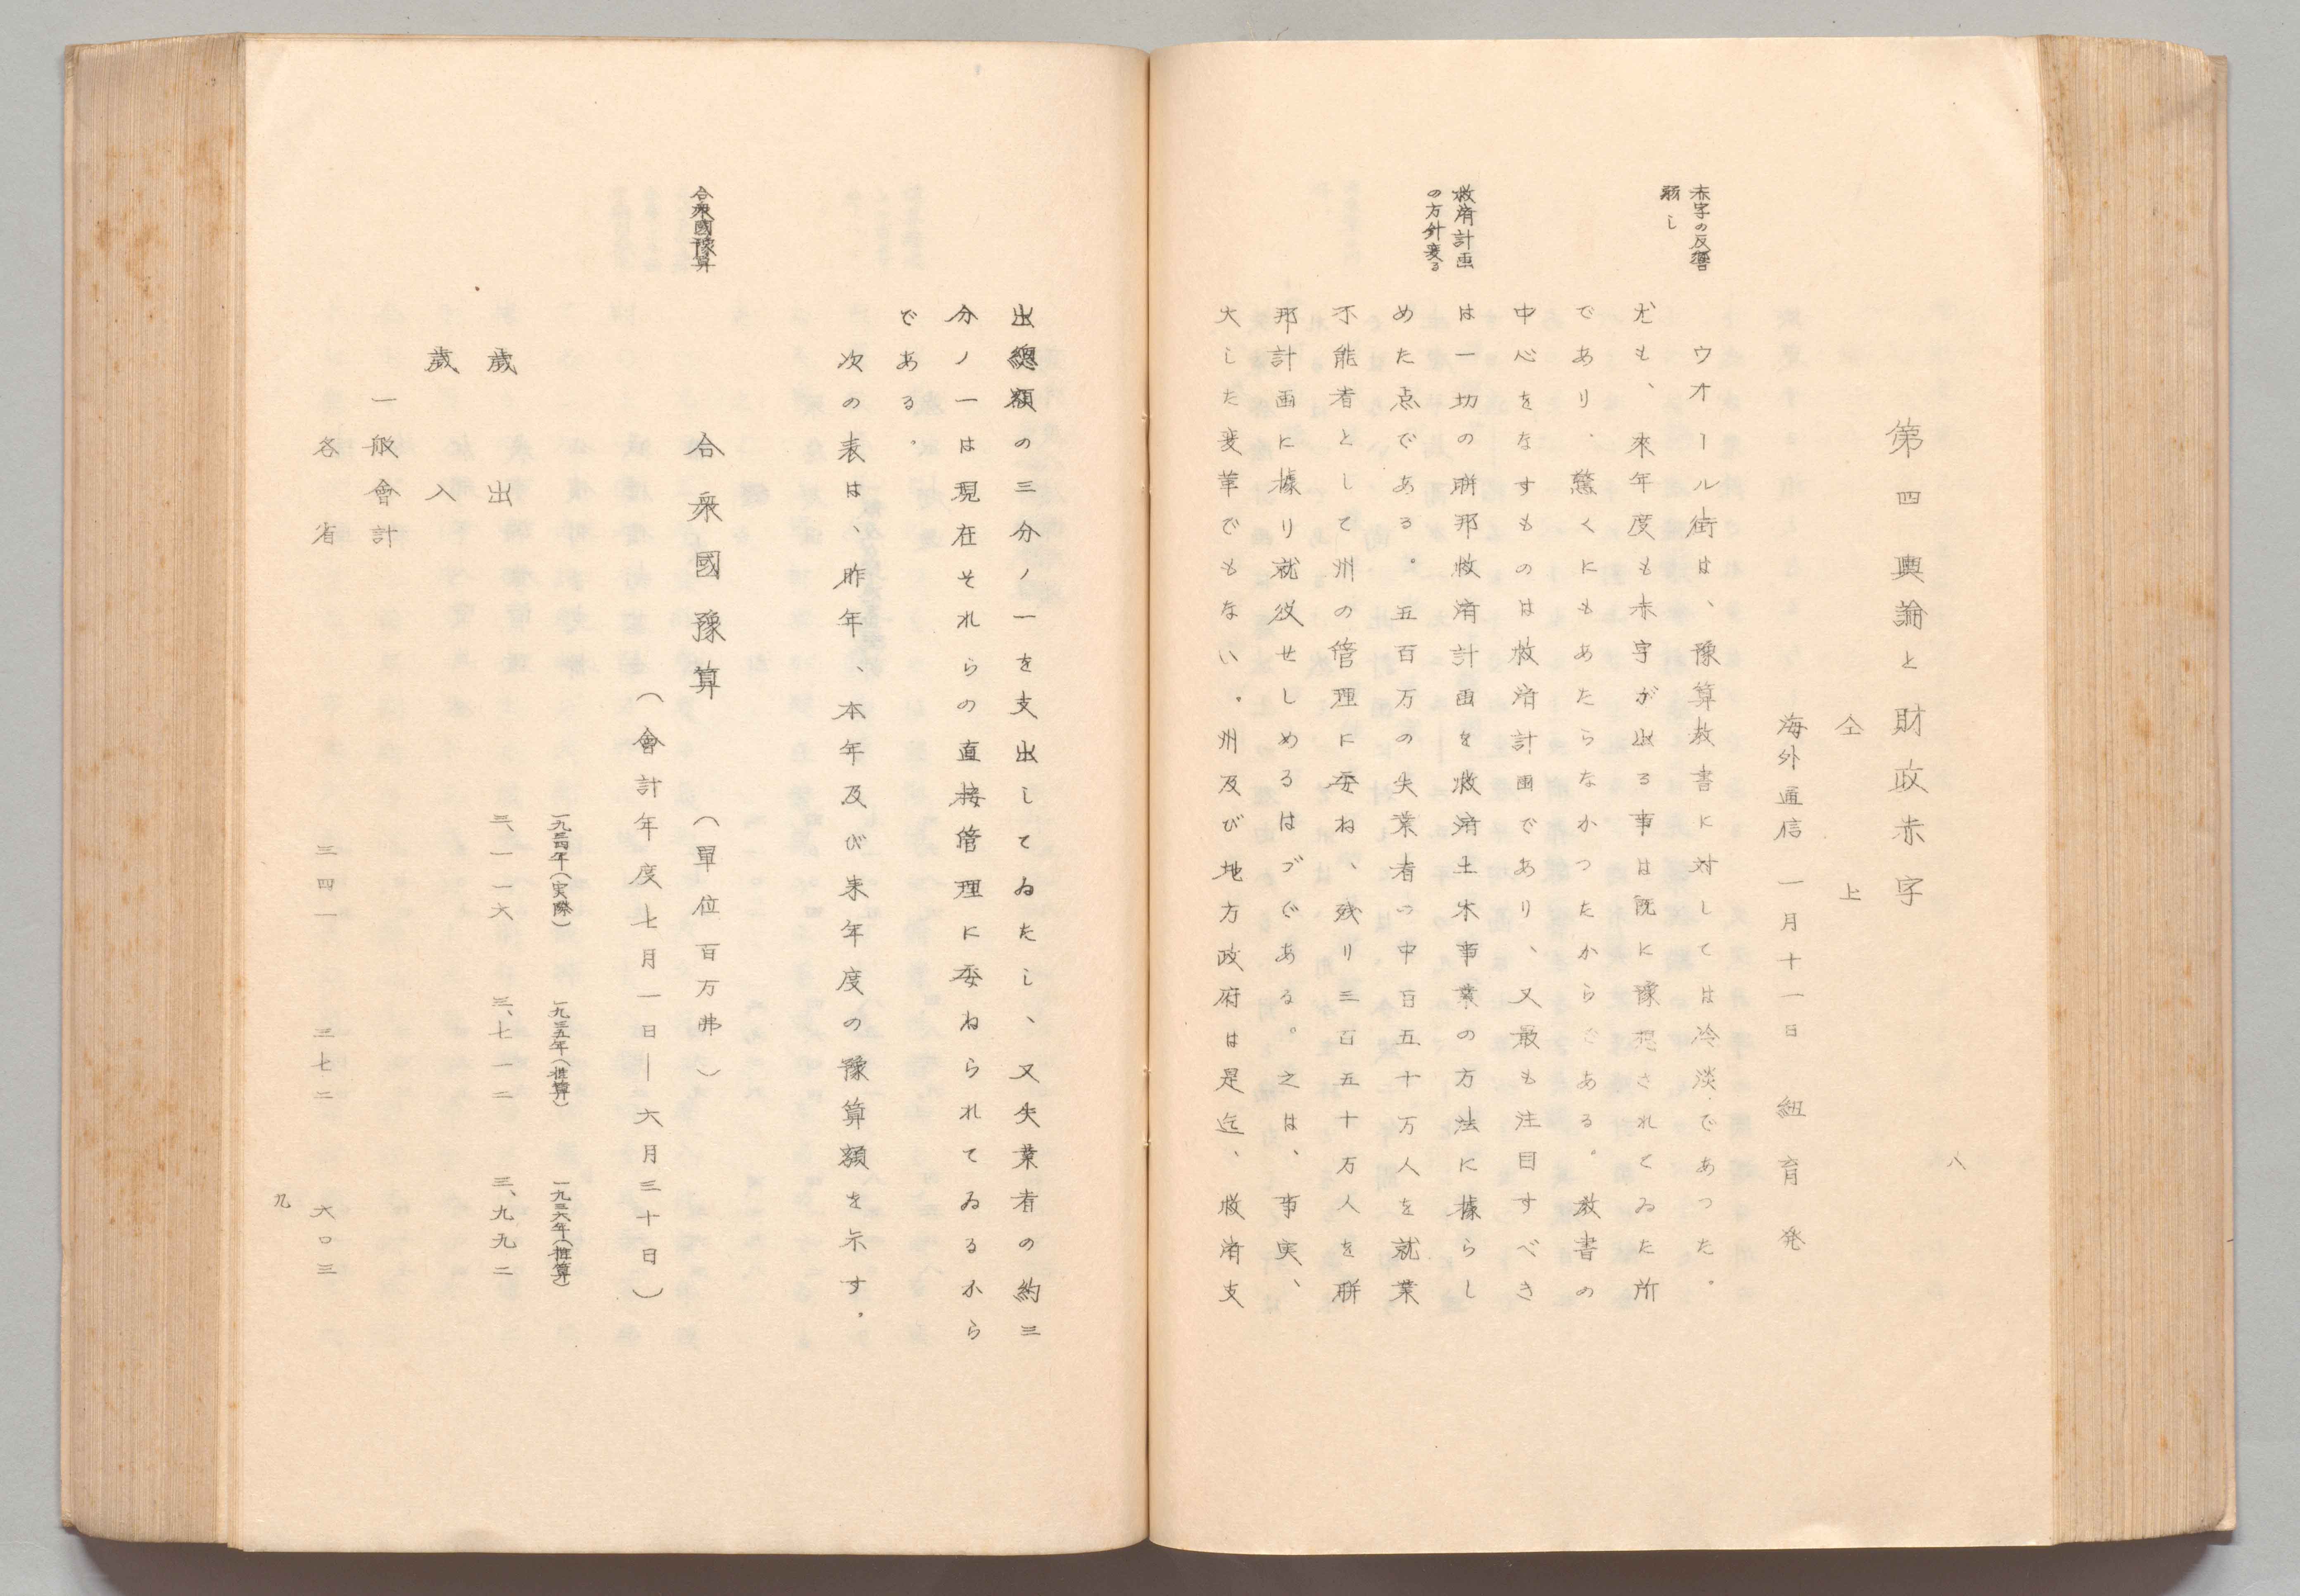 八
第四 輿論と財政赤字
仝 上
海外通信 一月十一日 紐育発
赤字の反響
弱し
ウオール街は、豫算教書に対しては冷淡であつた。
尤も、來年度も赤字が出る事は既に豫想されてゐた所
であり、驚くにもあたらなかつたからである。教書の
中心をなすものは救済計画であり、又最も注目すべき
救済計画
の方針変る
は一切の聯邦救済計画を救済土木事業の方法に據らし
めた点である。五百万の失業者の中百五十万人を就業
不能者として州の管理に委ね、残り三百五十万人を聯
邦計画に據り就役せしめるはづである。之は、事実、
大した変革でもない。州及び地方政府は是迄、救済支
出總額の三分ノ一を支出してゐたし、又失業者の約三
分ノ一は現在それらの直接管理に委ねられてゐるから
である。
次の表は、昨年、本年及び来年度の豫算額を示す。
合衆國豫算
合衆國豫算 (單位百万弗)
(會計年度七月一日—六月三十日)
一九三四年(実際) 一九三五年(推算) 一九三六年(推算)
歳出 三、一一六 三、七一二 三、九九二
歳入
一般會計
各省 三四一 三七二 六〇三
九